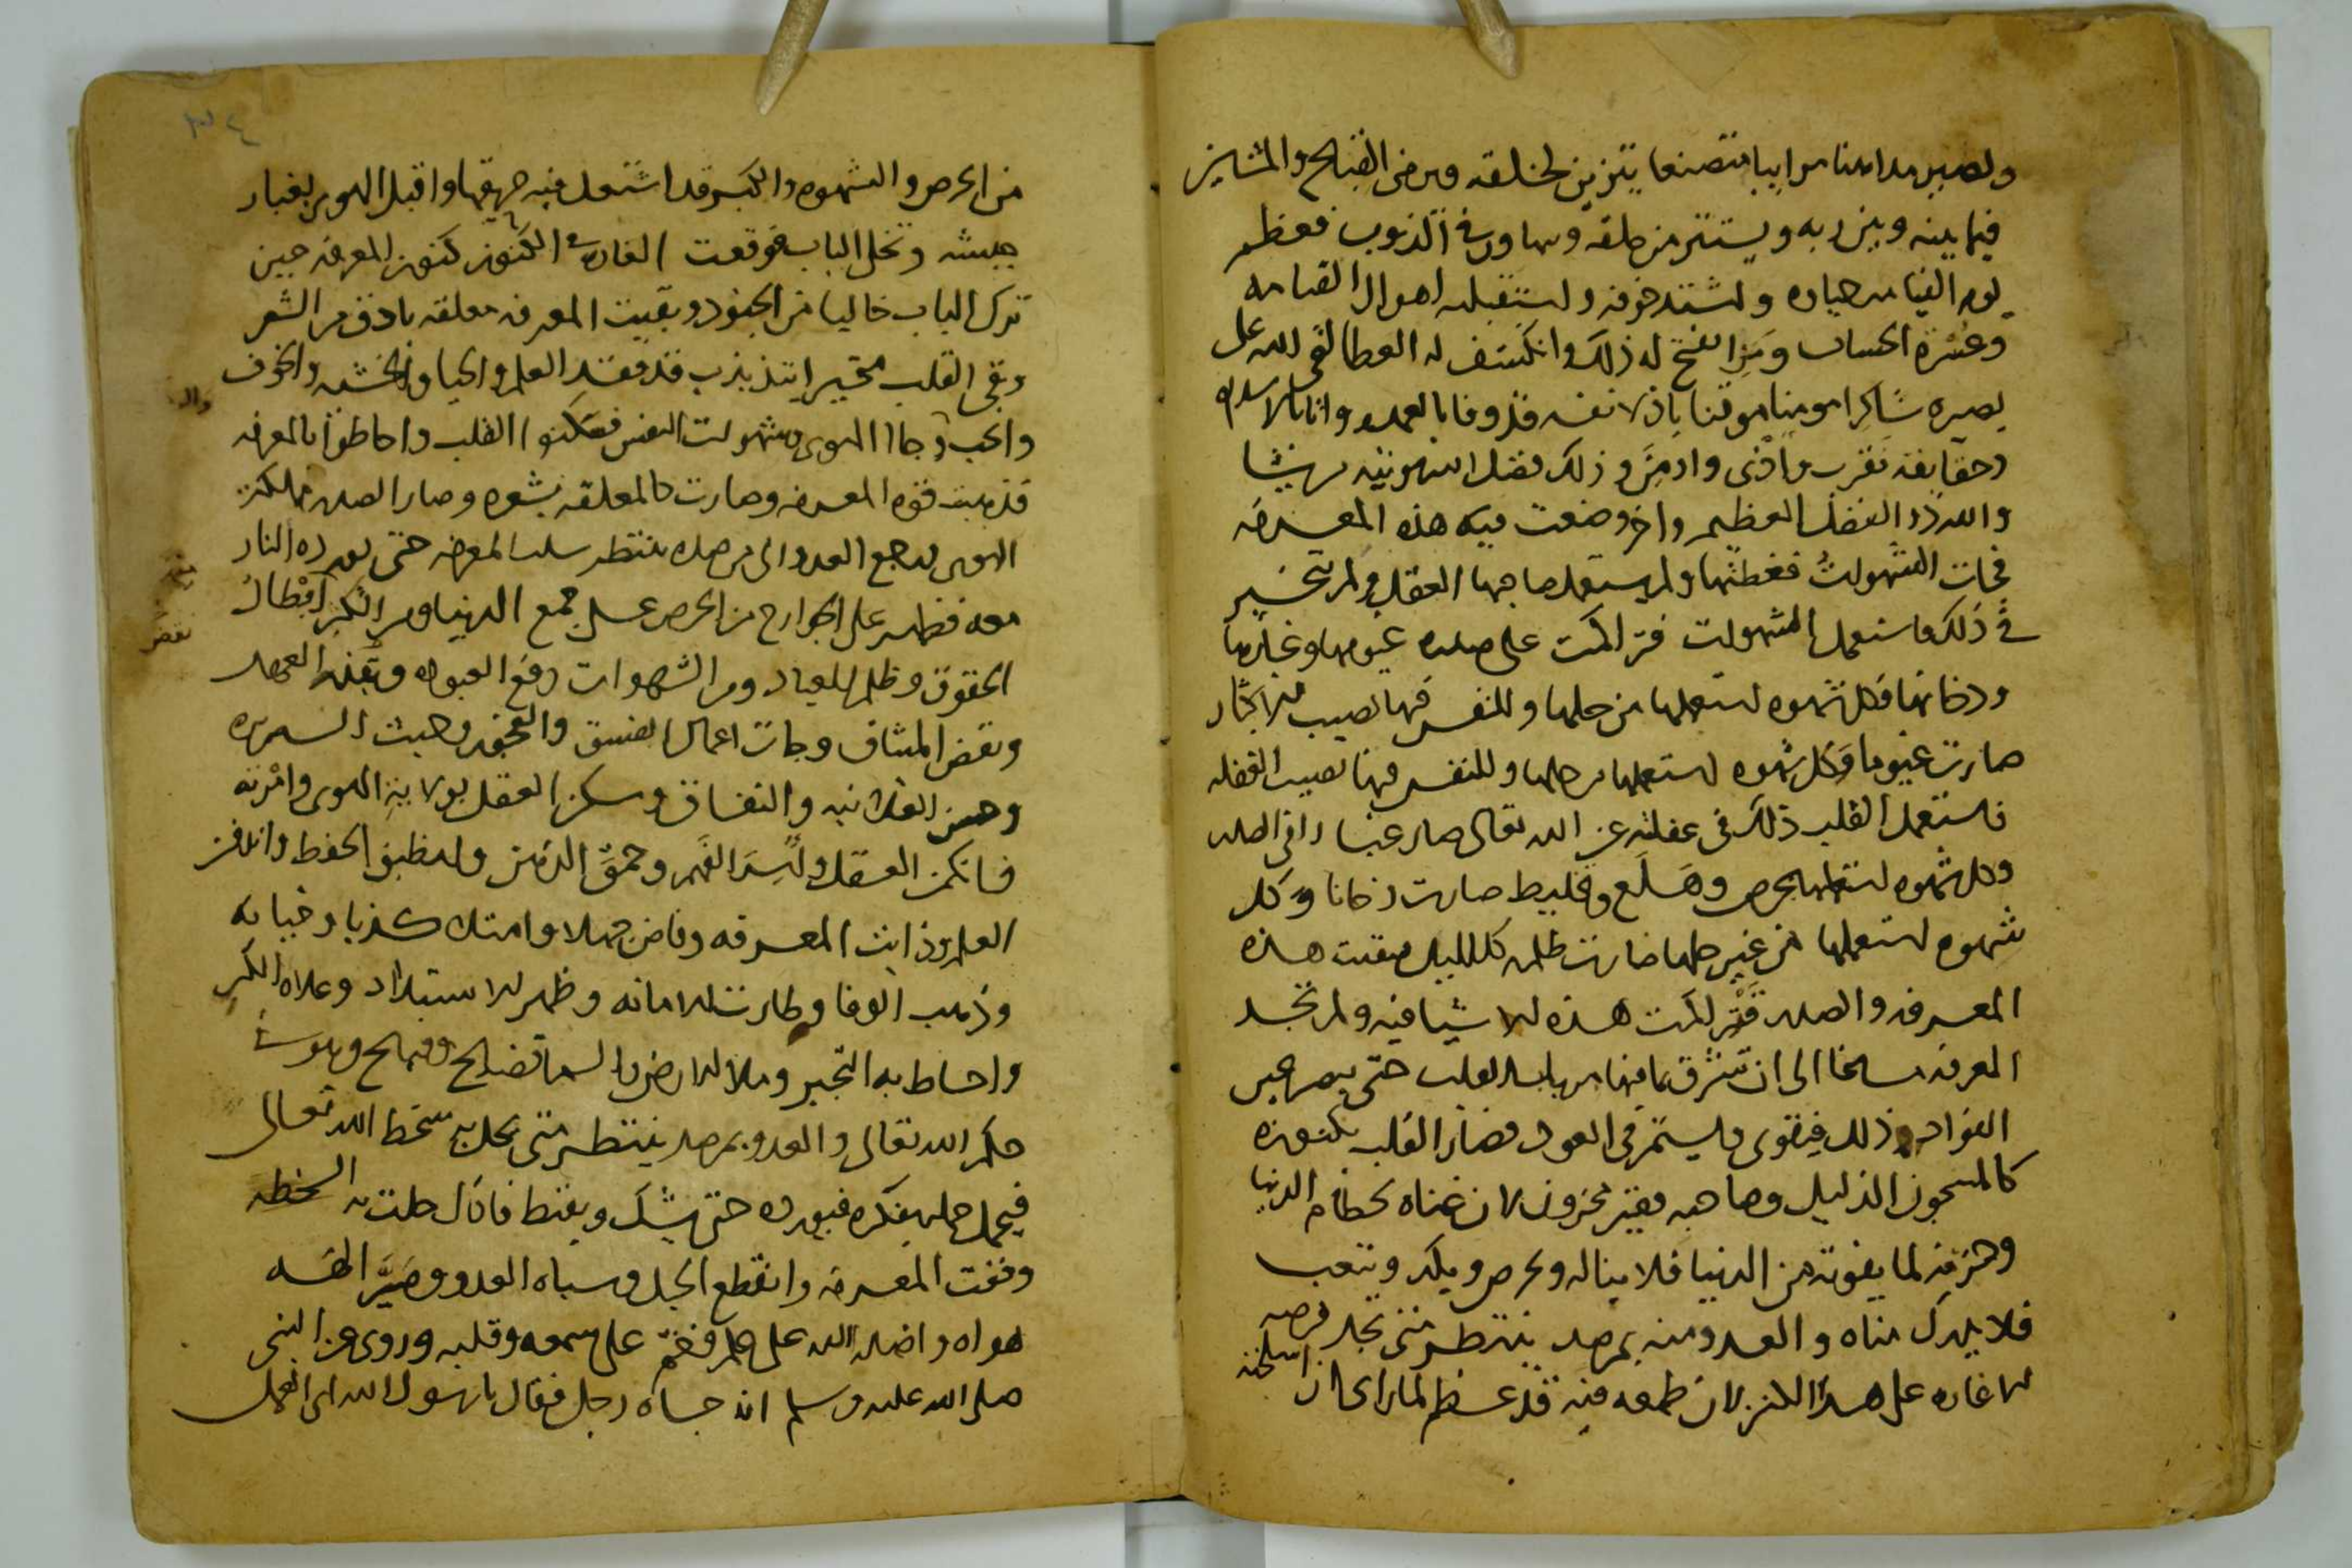 ويصير مداهنا مرايبا متصنعا يتزين لخلقه ويرضى القبايح والمشاين
فيما بينه وبين ربه ويستتر من خلقه وبها ورى الذنوب فعظم
يوم القيامه حياوه ويشتد خوفه ويستقبله اهوال القيامه
وعسرة الحساب ومن افتح له ذلك وانكشف له الغطا لقى الله على
بصيره شاكرا مومنا موقنا باذلا نفسه قد وفا بالعهد واتا بالاسلام
وحقايقه تقرب وادنى وذلك فضل الله يوتيه من يشا
والله ذو الفضل العظيم واخر وضعت فيه هذه المعرفه
فجات الشهوات فغطتها ولم يستعمل صاحبها العقل ولم يتخير
فى ذلك فاستعمل الشهوات فتراكمت على صدره غيومها وغبارها
ودخانها فكل شهوه استعملها من حلها وللنفس فيها نصيب
صارت غيوما وكل شهوه استعملها من حلها وللنفس فيها نصيب الغفله
فاستعمل القلب ذلك فى غفلته عن الله تعالى صار غبارا فى الصدر
وكل شهوه استعملها بحرص وهلع وتخليط صارت دخانا وكل
شهوه استعملها من غير حلها صارت ظلمه كالليل فبقيت هذه
المعرفه والصدر قد تراكمت هذه الاشيا فيه ولم تجد
المعرفه مساغا الى ان تشرق بما فيها من باب القلب حتى يبصر عين
الفواد ذلك فيقوى ويستمر فى العبوده فصار القلب بكنوزه
كالمسجون الذليل وصاحبه فقير محزون لان غناه بحطام الدنيا
وحزنه لما يفوته من الدنيا فلا يناله ويحرص ويكد ويتعب
فلا يدرك مناه والعدو منه بمرصد ينتظر متى يجد فرصه
الاغاره على هذا الكنز لان طمعه فيه قد عظم لما راى ان اسلحته
٣٤
من الحرص والشهوه والكبر قد اشتعل فيه حريقها واقبل الهوى بغبار
جيشه وتخلى الباب فوقعت الغاره فى الكنوز كنوز المعرفه حين
ترك الباب خاليا من الجنود وبقيت المعرفه معلقه بادق من الشعر
وبقى القلب متحيرا يتذبذب قد فقد العلم والحيا والخشيه والخوف
والحب وجا الهوى وشهوات النفس فسكنوا القلب واحاطوا بالمعرفه
فذهبت قوه المعرفه وصارت كالمعلقه بشعره وصار الصدر مملكة
الهوى يرجع العدو الى مرصده ينتظر سلب المعرفه حتى يورده النار
معه فظهر على الجوارح من الحرص على جمع الدنيا ومن الكبر ابطال
الحقوق وظلم العباد ومن الشهوات رفع العبوده ونقض العهد
ونقض الميثاق وجات اعمال الفسق والفجور وخبث السريره
وحسن العلانيه والنفاق وسكن العقل بولاية الهوى وامرته
فانكمن العقل وانسد الفهم وحمق الذهن وانطبق الحفظ واندفن
العلم وذابت المعرفه وفاض جهلا وامتلا كذبا وخيانه
وذهب الوفا وطارت الامانه وظهر الاستبداد وعلاه الكبر
واحاط به التجبر وملا الارض والسما فضايح وقبايح وهو فى
حلم الله تعالى والعدو بمرصد ينتظر متى يحل به سخط الله تعالى
فيحمل حمله بفكره فيورده حتى يشك ويقنط فاذا حلت به السخطه
وقفت المعرفه وانقطع الحبل وسباه العدو وصير الهه
هواه واضله الله على علم فختم على سمعه وقلبه وروى عن النبى
صلى الله عليه وسلم انه جاه رجل فقال يا رسول الله اى العمل